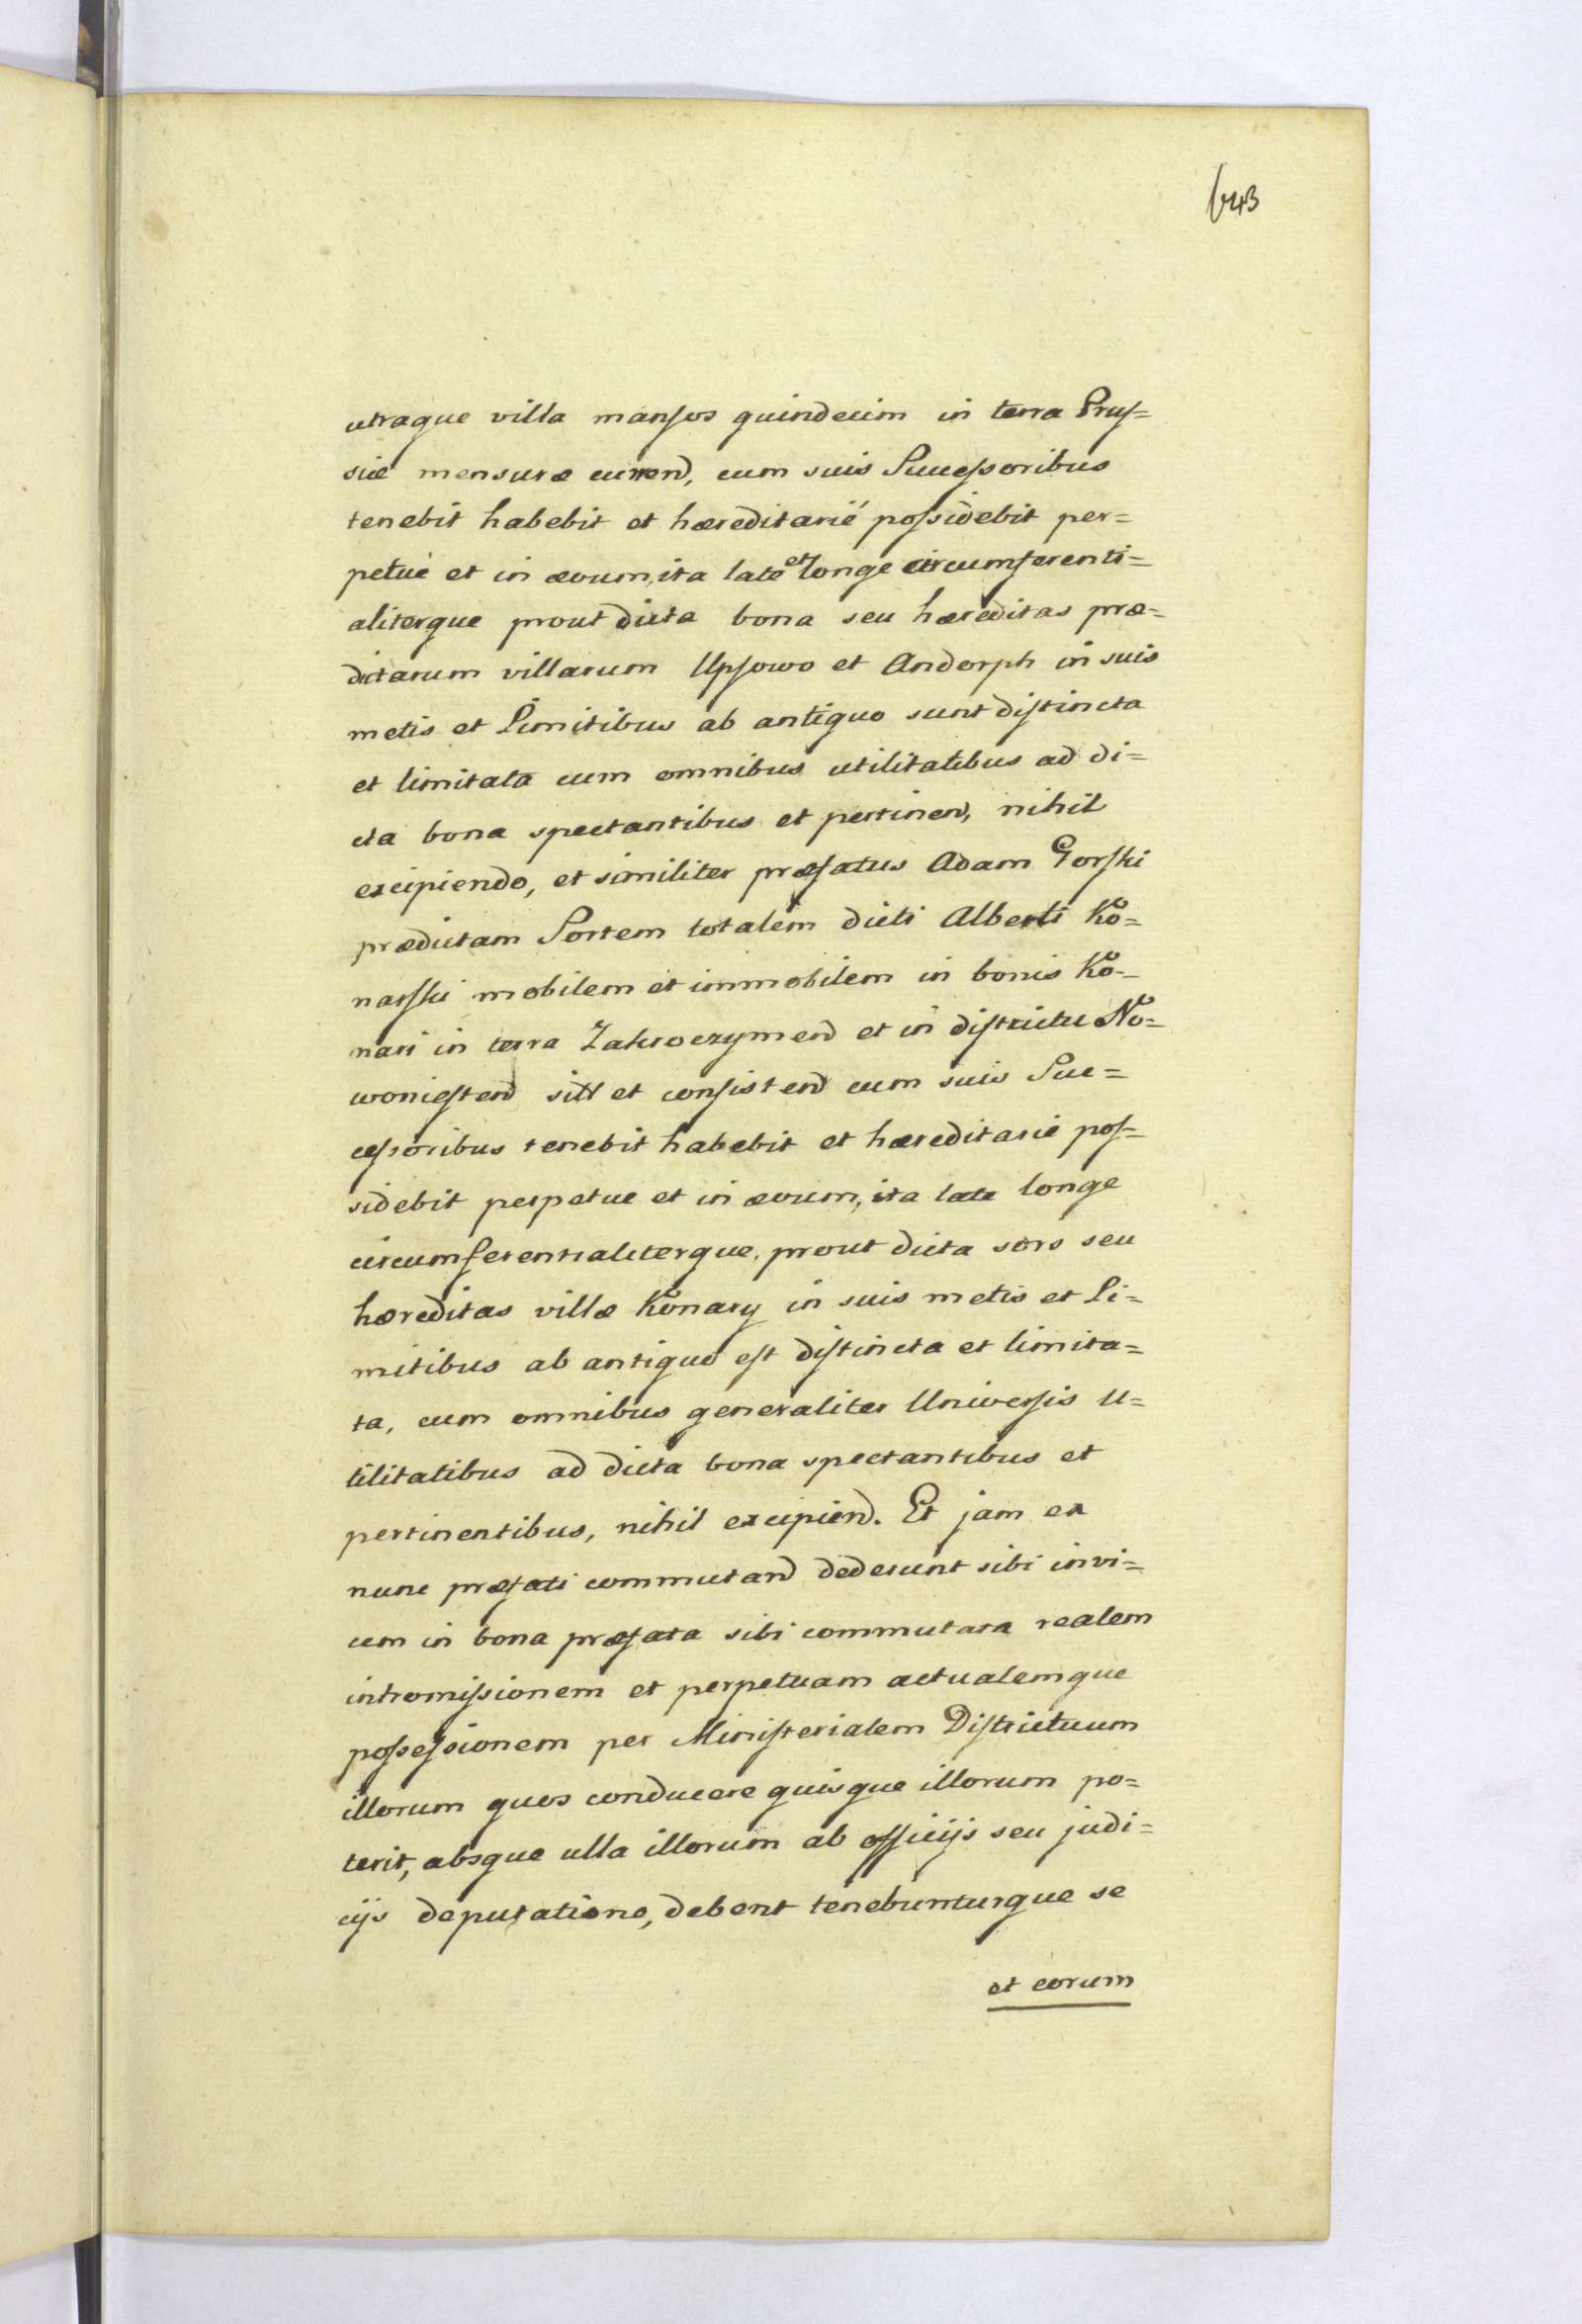 643
utraque villa mansos quindecim in terra Prus=
siæ mensuræ currend, cum suis Successoribus
tenebit habebit et hæreditarié possidebit per=
petué et in ævum, ita late et longe circumferenti=
aliterque prout dicta bona seu hæreditas præ=
dictarum villarum Upsowo et Andorph in suis
metis et Limitibus ab antiquo sunt distincta
et limitata cum omnibus utilitatibus ad di=
cta bona spectantibus et pertinen, nihil
excipiendo, et similiter præfatus Adam Gorski
prædictam Sortem totalem dicti Alberti Ko=
narski mobilem et immobilem in bonis Ko=
nari in terra Zakroczymend et in districtu No=
womiestend sitt et consistend cum suis Suc=
cessoribus tenebit habebit et hæreditarié pos=
sidebit perpetue et in ævum, ita late longe
circumferentialiterque, prout dicta sors seu
hæreditas villæ Konary in suis metis et Li=
mitibus ab antiquo est distincta et limita=
ta, cum omnibus generaliter Universis U=
tilitatibus ad dicta bona spectantibus et
pertinentibus, nihil excipiend. Et jam ex
nunc præfati commutand dederunt sibi invi=
cem in bona præfata sibi commutata realem
intromissionem et perpetuam actualemque
possessionem per Ministerialem Districtuum
illorum quos conducere quisque illorum po=
terit, absque ulla illorum ab officijs seu judi=
cijs deputatione, debent tenebunturque se
et eorum